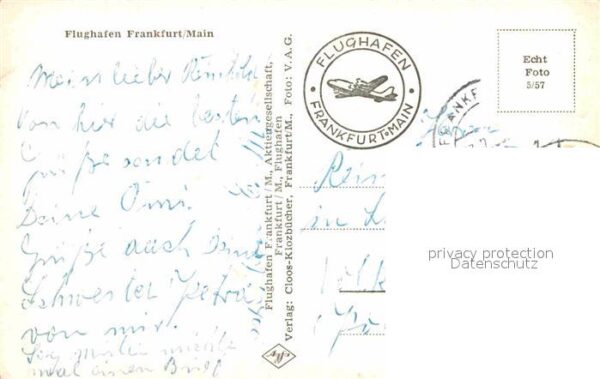 Flughafen Frankfurt/Main
Mein lieber Reinhold
Von hier die besten
Grüße sendet
Deine Omi.
Grüße auch Deine
Schwester Petra
von mir.
mal einen Brief
Flughafen Frankfurt/M., Aktiengesellschaft,
Frankfurt/M., Flughafen
Verlag: Cloos-Klozbücher, Frankfurt/M., Foto: V.A.G.
FLUGHAFEN
FRANKFURT-MAIN
Echt
Foto
5/57
FRANKF
in
privacy protection
Datenschutz